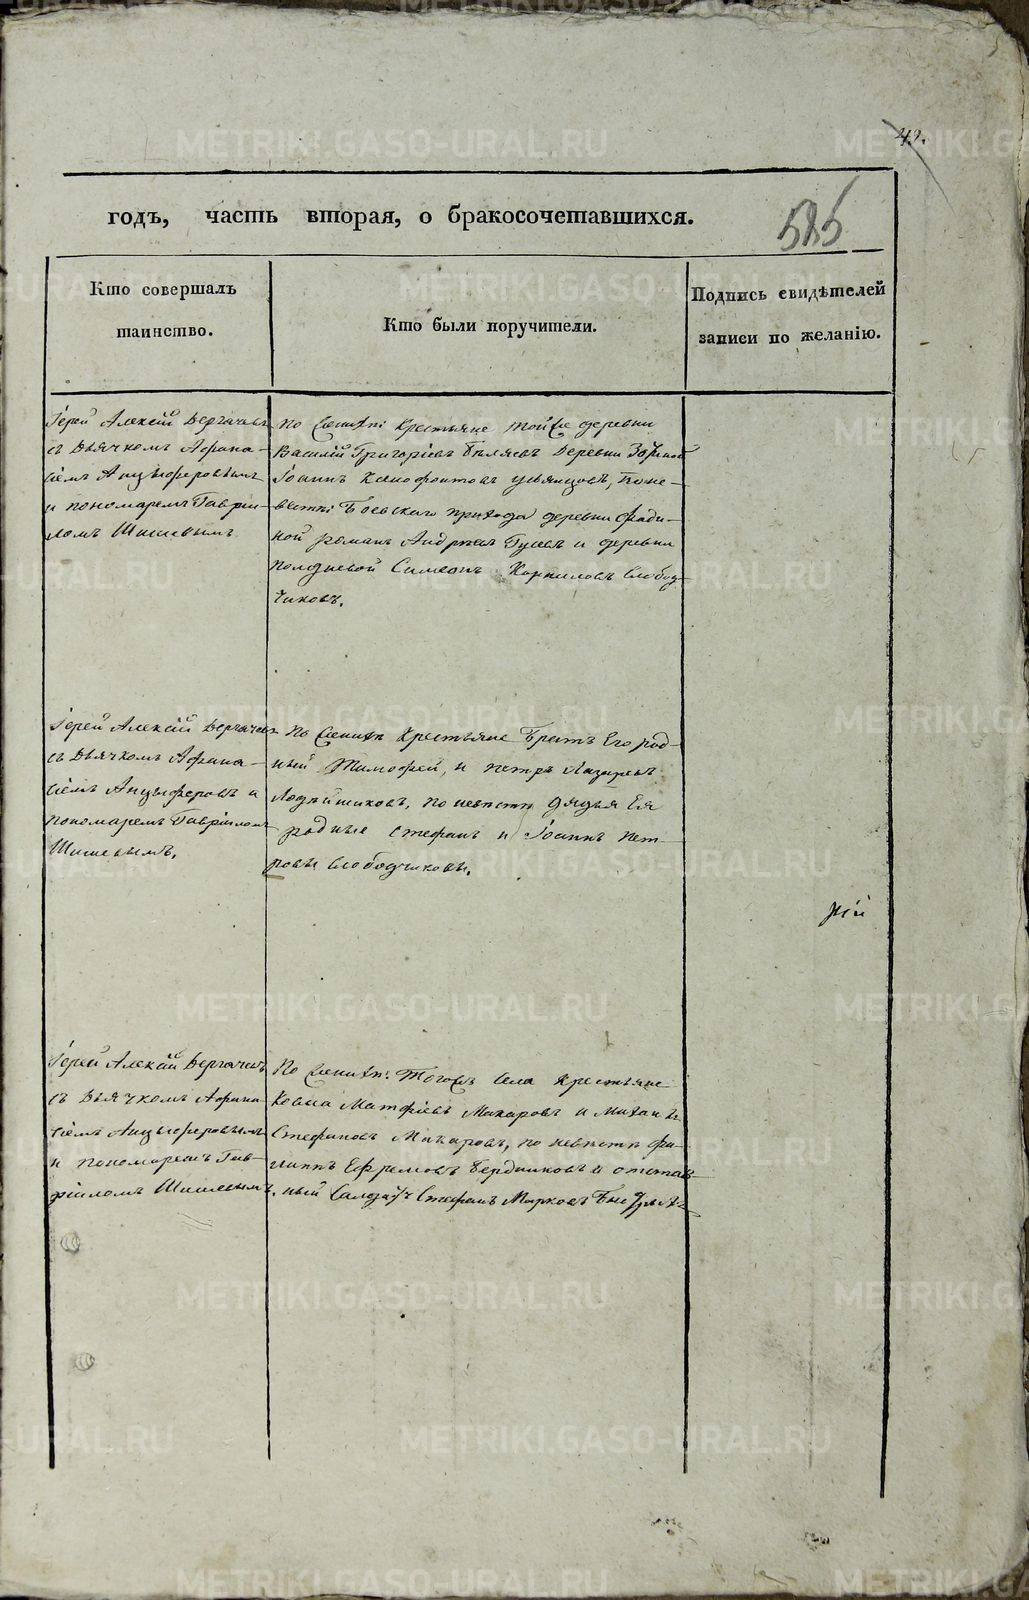 42.
годъ, часть вторая, о бракосочетавшихся.
585
Кто совершалъ
таинство.
Кто были поручители.
Подпись свидѣтелей
записи по желанію.
Іерей Алексій Дергачевъ
съ Дьячкомъ Афана-
сіемъ Анцыферовымъ
и пономаремъ Гаврiи-
ломъ Шишевымъ
По женихѣ крестьяне тойже деревни
Василій Григоріевъ Бѣляевъ деревни
Іоаннъ Ксенофонтовъ по не-
вестѣ Боевскаго прихода деревни
ной Романъ Андреевъ Гусевъ и деревни
Полдневой Симеонъ Корниловъ Слобод-
чиковъ.
Іерей Алексій Дергачевъ
съ Дьячкомъ Афана-
сіемъ Анцыферовъ и
пономаремъ Гавріиломъ
Шишевымъ.
По женихѣ крестьяне Братъ Его род-
ный Тимофей, и Петръ Лазаревъ
по невестѣ дядья Ея
родные Стефанъ и Іоаннъ Пет-
ровы Слободчиковы.
Іерей Алексій Дергачевъ
съ Дьячкомъ Афана-
сіемъ Анцыферовымъ
и пономаремъ Гав-
ріиломъ Шишевымъ.
По женихѣ: тогожъ села крестьяне
Козма Матфіевъ Макаровъ и Михаилъ
Стефановъ Макаровъ, по невестѣ Фи-
липпъ Ефремовъ Бердниковъ и отстав-
ный Салдатъ Стефанъ Марковъ